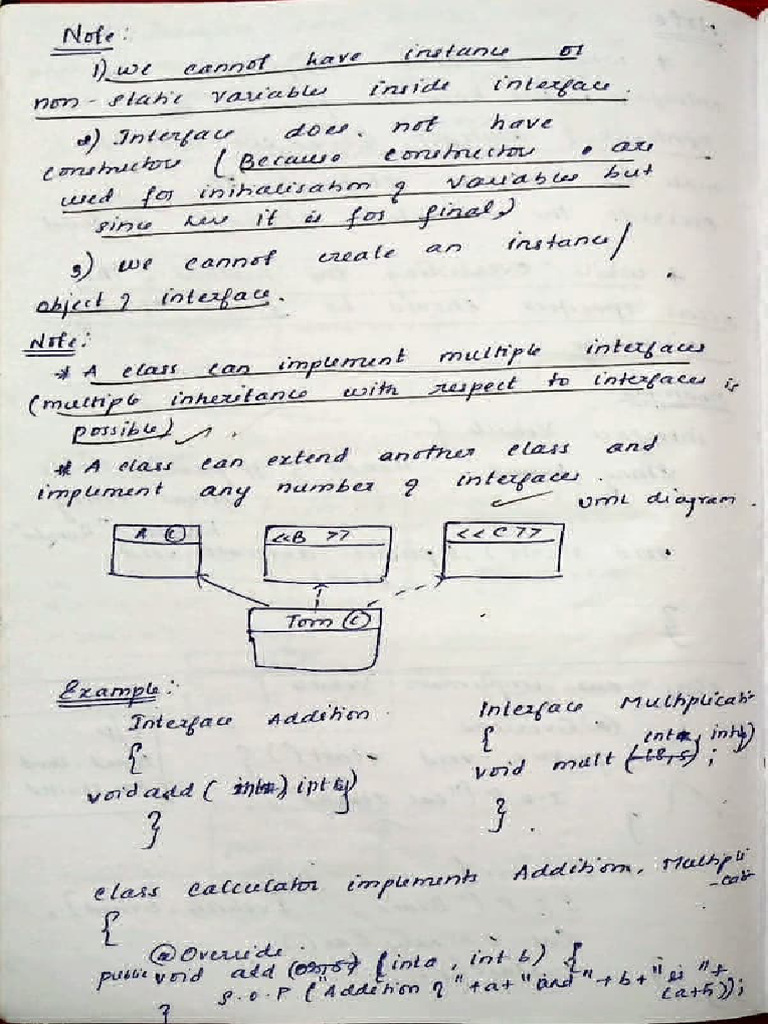 Note:
1) we cannot have instance or
non-static variables inside interface.
2) Interface does not have
constructor (Because constructor are
used for initialisation of variables but
since here it is for final,)
3) we cannot create an instance/
object of interface.
Note:
* A class can implement multiple interfaces
(multiple inheritance with respect to interfaces is
possible)
* A class can extend another class and
implement any number of interfaces.
UML diagram.
A (C) <<B >> <<C>>
Tom (C)
Example:
Interface Addition Interface Multiplicati
{ {
void add ( int b) void mult (int a, int b) ;
} }
class calculator implements Addition, Multipli
-cati
{
@Override
public void add (int a, int b) {
S.O.P ("Addition of "+a+" and "+b+" is "+
(a+b));
}